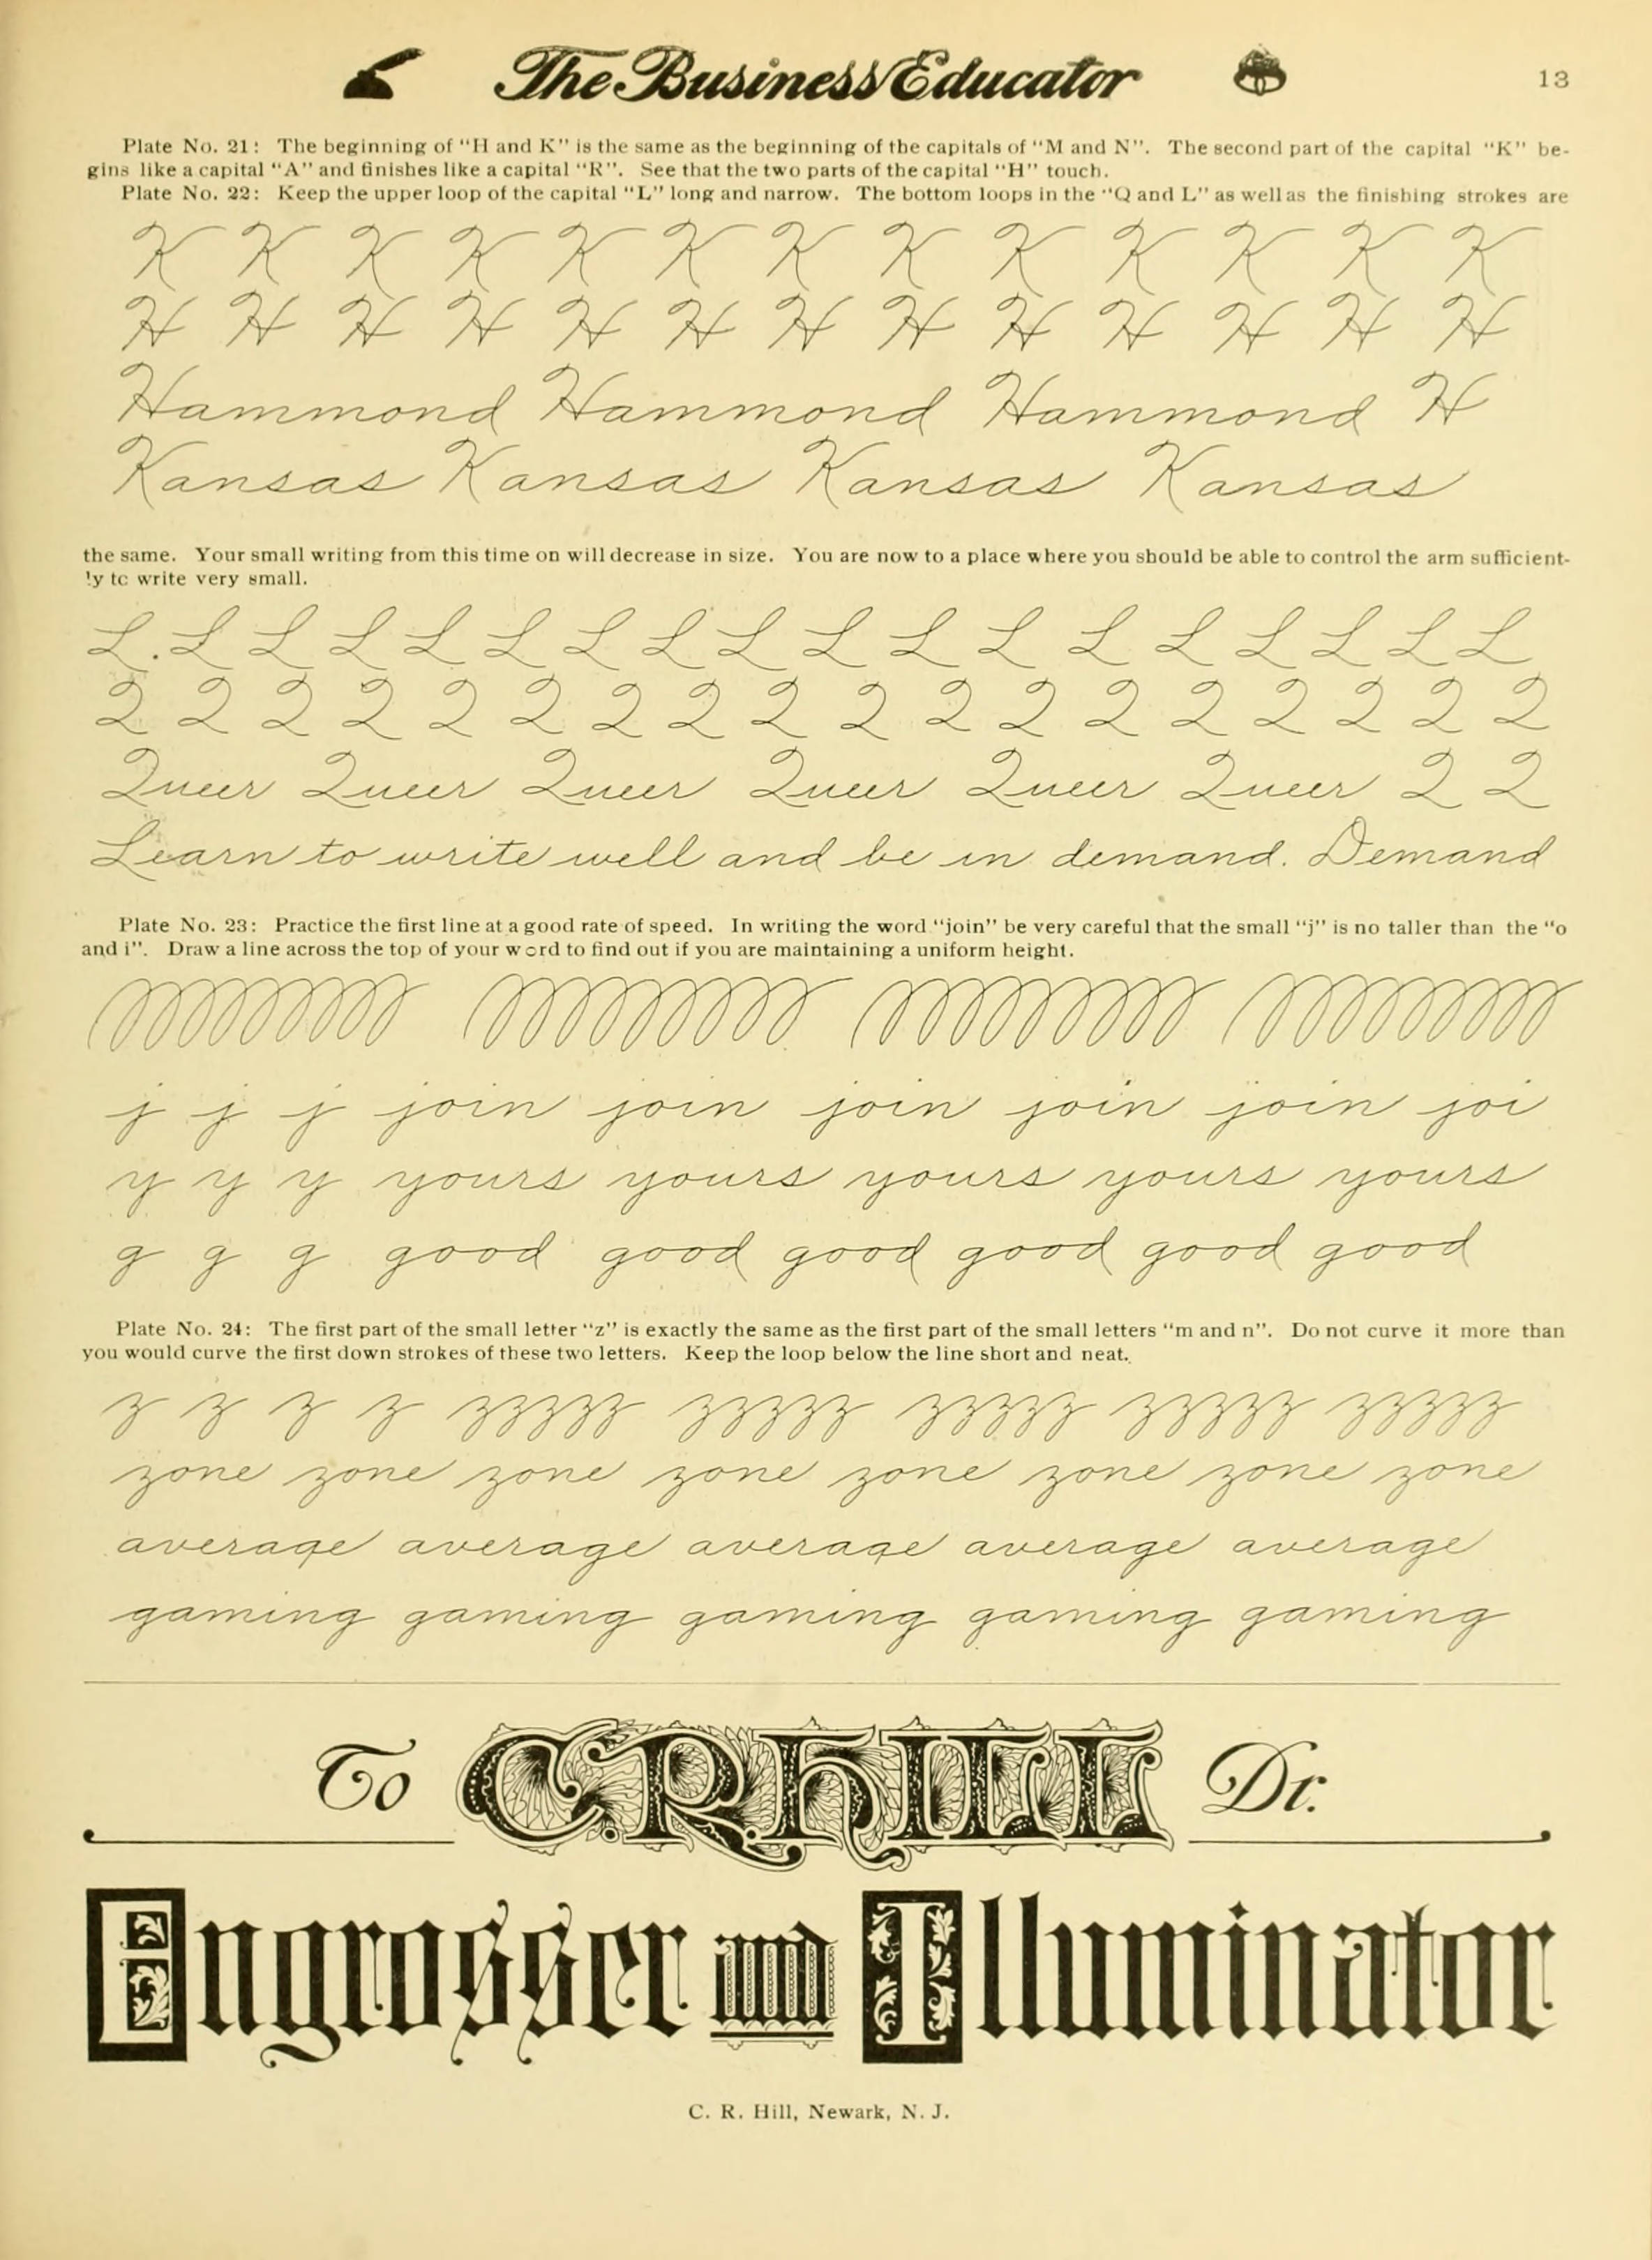 The Business Educator 13
Plate No. 21: The beginning of "H and K" is the same as the beginning of the capitals of "M and N". The second part of the capital "K" be-
gins like a capital "A" and finishes like a capital "R". See that the two parts of the capital "H" touch.
Plate No. 22: Keep the upper loop of the capital "L" long and narrow. The bottom loops in the "Q and L" as well as the finishing strokes are
K K K K K K K K K K K K K
H H H H H H H H H H H H H
Hammond Hammond Hammond H
Kansas Kansas Kansas Kansas
the same. Your small writing from this time on will decrease in size. You are now to a place where you should be able to control the arm sufficient-
ly to write very small.
L. L L L L L L L L L L L L L L L L L
Q Q Q Q Q Q Q Q Q Q Q Q Q Q Q Q Q Q
Queer Queer Queer Queer Queer Queer Q Q
Learn to write well and be in demand. Demand
Plate No. 23: Practice the first line at a good rate of speed. In writing the word "join" be very careful that the small "j" is no taller than the "o
and i". Draw a line across the top of your word to find out if you are maintaining a uniform height.
j j j join join join join join joi
y y y yours yours yours yours yours
g g g good good good good good good
Plate No. 24: The first part of the small letter "z" is exactly the same as the first part of the small letters "m and n". Do not curve it more than
you would curve the first down strokes of these two letters. Keep the loop below the line short and neat.
z z z z zzzzz zzzzz zzzzz zzzzz zzzzz
zone zone zone zone zone zone zone zone
average average average average average
gaming gaming gaming gaming gaming
To C R Hill Dr.
Engrosser and Illuminator
C. R. Hill, Newark, N. J.